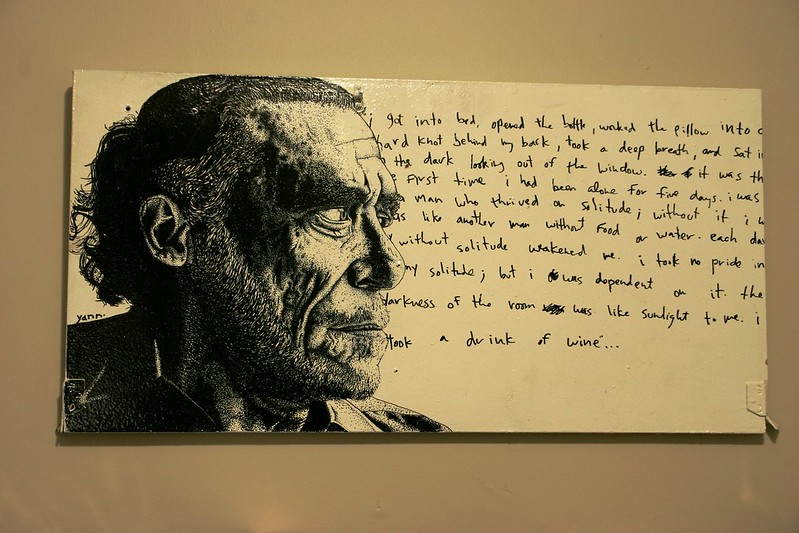 i got into bed, opened the bottle, worked the pillow into a
hard knot behind my back, took a deep breath, and sat in
the dark looking out of the window. it was the
first time i had been alone for five days. i was
man who thrived on solitude; without it i w
as like another man without food or water. each day
without solitude weakened me. i took no pride in
my solitude; but i was dependent on it. the
darkness of the room was like sunlight to me. i
took a drink of wine"...
yann